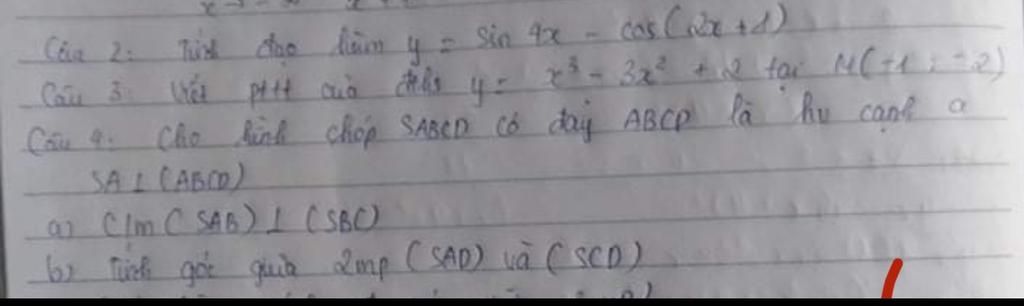 Câu 2: Tính đạo hàm y = sin 4x - cos(2x + 1)
Câu 3: Viết pttt của đths y = x³ - 3x² + 2 tại M(-1; -2)
Câu 4: Cho hình chóp SABCD có đáy ABCD là hv cạnh a
SA ⊥ (ABCD)
a) C/m (SAB) ⊥ (SBC)
b) Tính góc giữa 2mp (SAD) và (SCD)